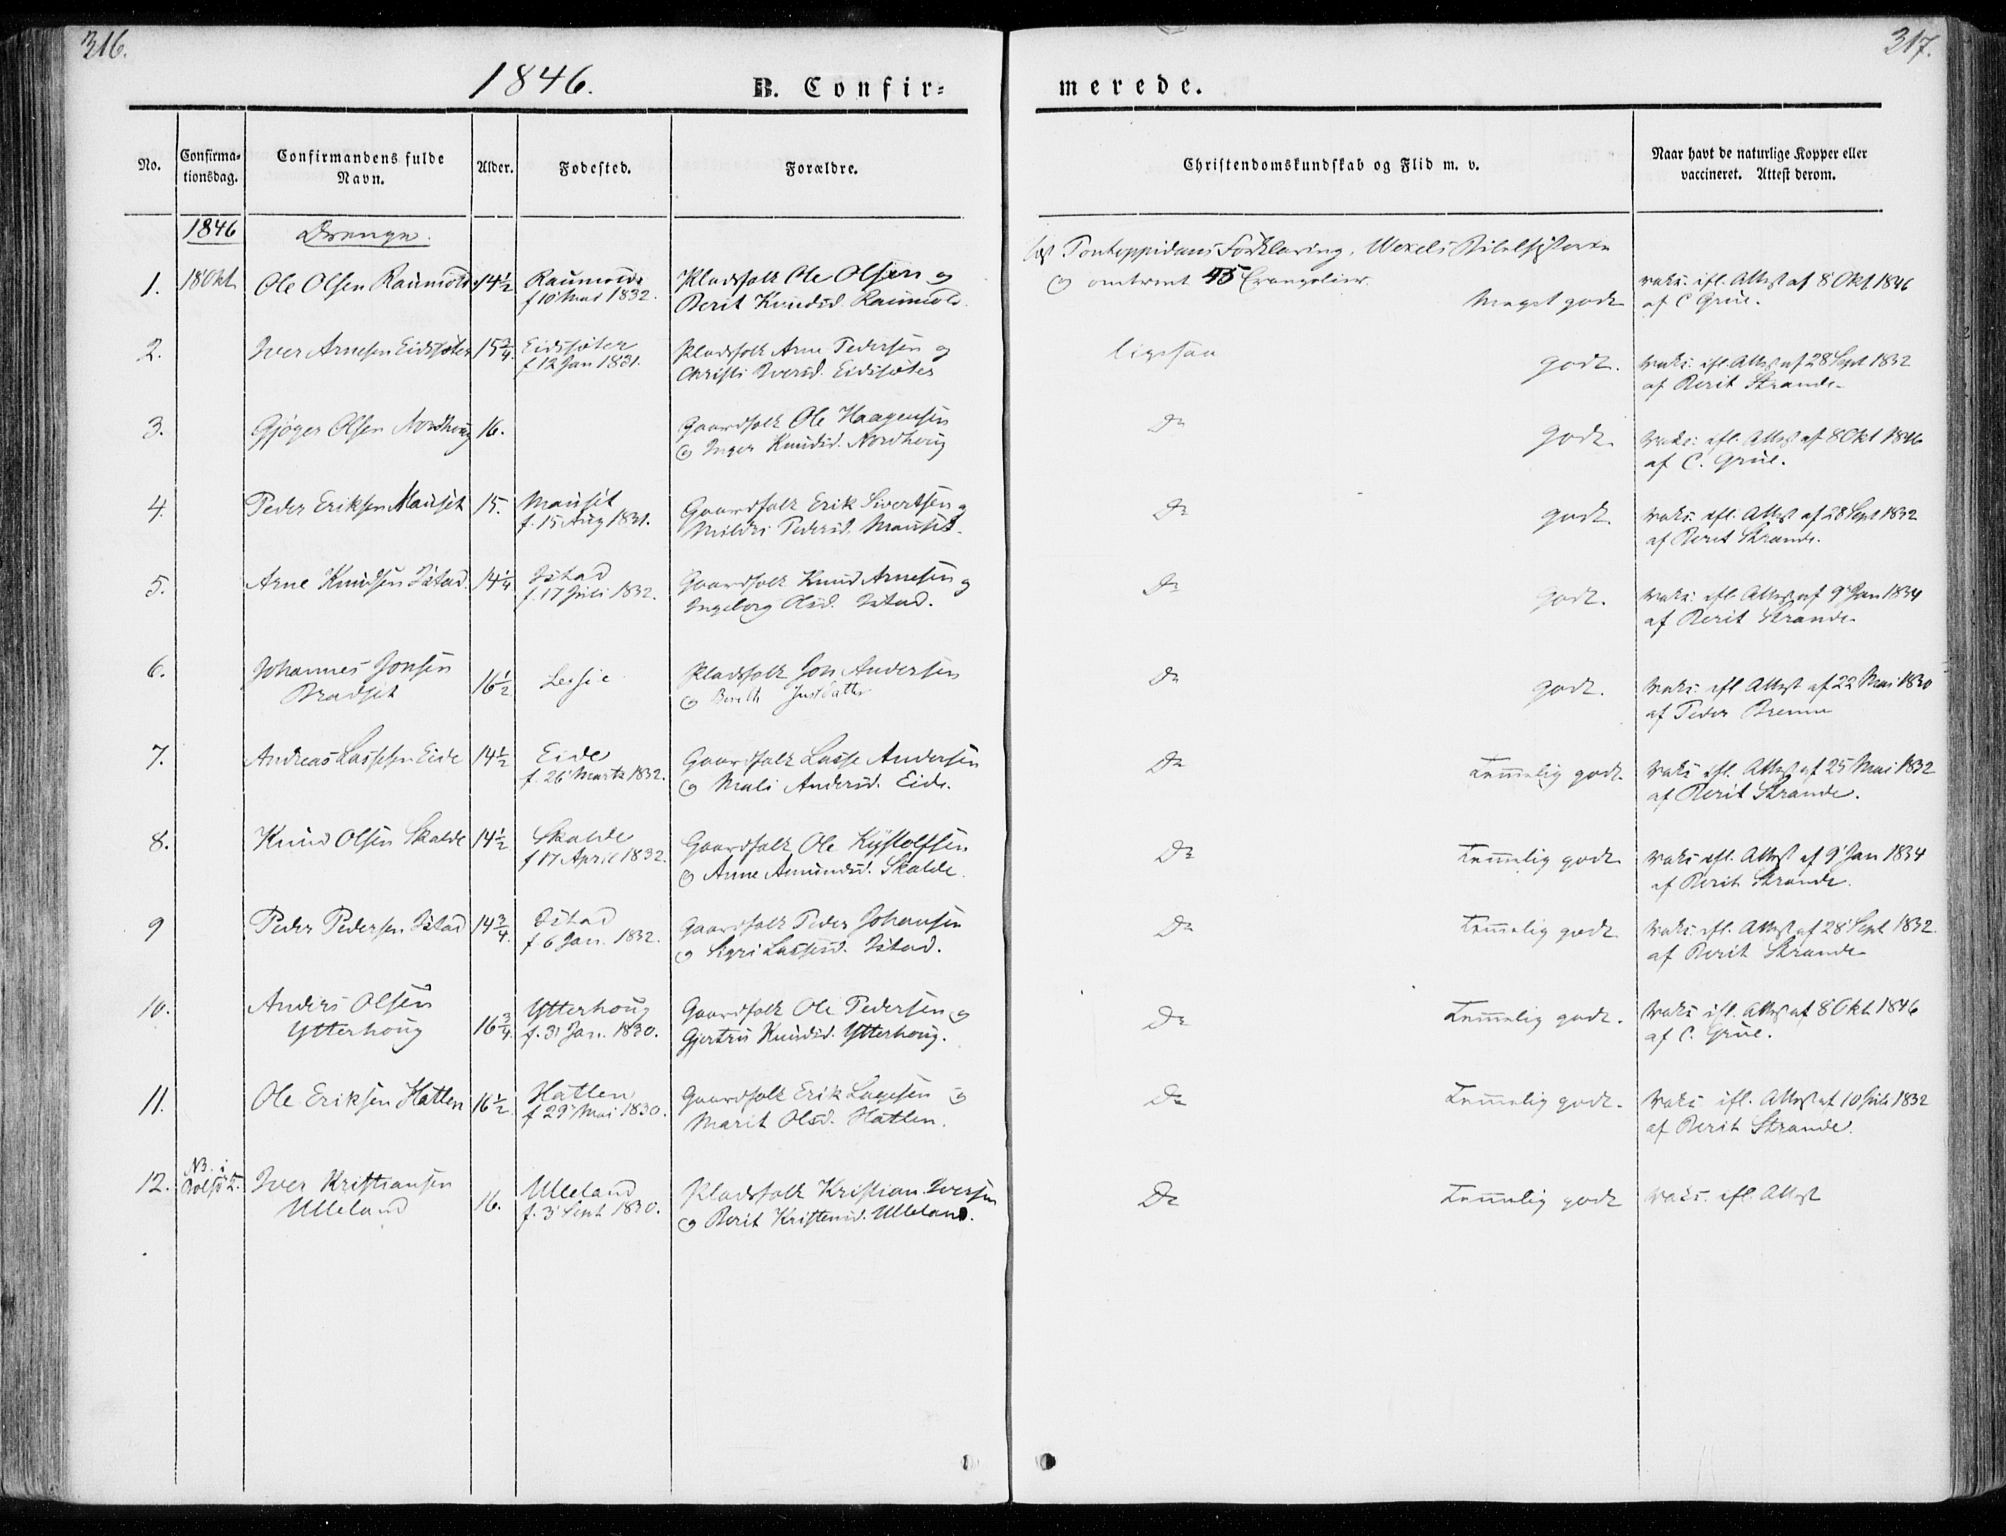 316.
317.
1846.
B. Confir=
merede.
No.
Confirma-
tionsdag.
Confirmandens fulde
Navn.
Alder.
Fødested.
Forældre.
Christendomskundskab og Flid m. v.
Naar havt de naturlige Kopper eller
vaccineret. Attest derom.
1846
Drenge.
Pontoppidans Forklaring, Wexels Bibelhistorie
og omtrent 45 Evangelier
1. 18 Okt Ole Olsen Raumold 14 1/2
Raumolde
f 10 Mai 1832.
Pladsfolk Ole Olsen og
Berit Knudsd. Raumold.
Meget godt
vaks. ifl. Attest af 8 Okt 1846
af C Grüe.
2. Iver Arnesen Eidssæter 15 3/4
Eidssæter
f 12 Jan 1831.
Pladsfolk Arne Pedersen og
Christi Iversd. Eidssæter
ligesaa
godt.
vaks. ifl. Attest af 28 Sept 1832
af Berit Strande
3. Gjøger Olsen Nordhoug 16.
Gaardfolk Ole Haagensen
og Inger Knudsd. Nordhoug
Do
godt.
vaks. ifl. Attest af 8 Okt 1846
af C. Grüe.
4. Peder Eriksen Mauset 15.
Mauset
f. 15 Aug 1831.
Gaardfolk Erik Sivertsen og
Mildri Pedersd. Mauset.
Do
godt.
vaks. ifl. Attest af 28 Sept 1832
af Berit Strande.
5. Arne Knudsen Istad. 14 1/4
Istad
f. 17 Juli 1832.
Gaardfolk Knud Arnesen og
Ingeborg Olsd. Istad.
Do
godt.
vaks. ifl. Attest af 9 Jan 1834
af Berit Strande
6. Johannes Jonsen
Bradset
16 1/2
Lessie
Pladsfolk Jon Andersen
og Bereth
Do
godt.
vaks. ifl Attest af 22 Mai 1830
af Peder Brenna
7. Andreas Lassesen Eide 14 1/2
Eide
f. 26 Marts 1832.
Gaardfolk Lasse Andersen
og Mali Andersd. Eide.
Do
Temmelig godt.
vaks ifl. Attest af 25 Mai 1832
af Berit Strande.
8. Knud Olsen Skalde 14 1/2
Skalde
f 17 April 1832.
Gaardfolk Ole Kystolfsen
og Anne Amundsd. Skalde.
Do
Temmelig godt
vaks ifl. Attest af 9 Jan 1834
af Berit Strande.
9 Peder Pedersen Istad 14 3/4
Istad
f 6 Jan. 1832.
Gaardfolk Peder Johansen
og Sigri Lassesd. Istad.
Do
Temmelig godt
vaks. ifl. Attest af 28 Sept 1832.
af Berit Strande
10. Anders Olsen
Ytterhoug
16 3/4
Ytterhoug
f. 31 Jan. 1830.
Gaardfolk Ole Pedersen og
Gjertru Knudsd. Ytterhoug.
Do
Temmelig godt.
vaks ifl. Attest af 8 Okt 1846
af C. Grüe.
11. Ole Eriksen Hatlen 16 1/2
Hatlen
f 29 Mai 1830.
Gaardfolk Erik Lagesen og
Marit Olsd. Hatlen.
Do
Temmelig godt.
vaks ifl. Attest af 10 Juli 1832
af Berit Strande.
12. NB. i
Bolsø K.
Iver Kristiansen
Ulleland
16.
Ulleland
f. 3 Sept 1830.
Pladsfolk Kristian Iversen
og Berit Kristensd. Ulleland.
Do
Temmelig godt
vaks. ifl. Attest